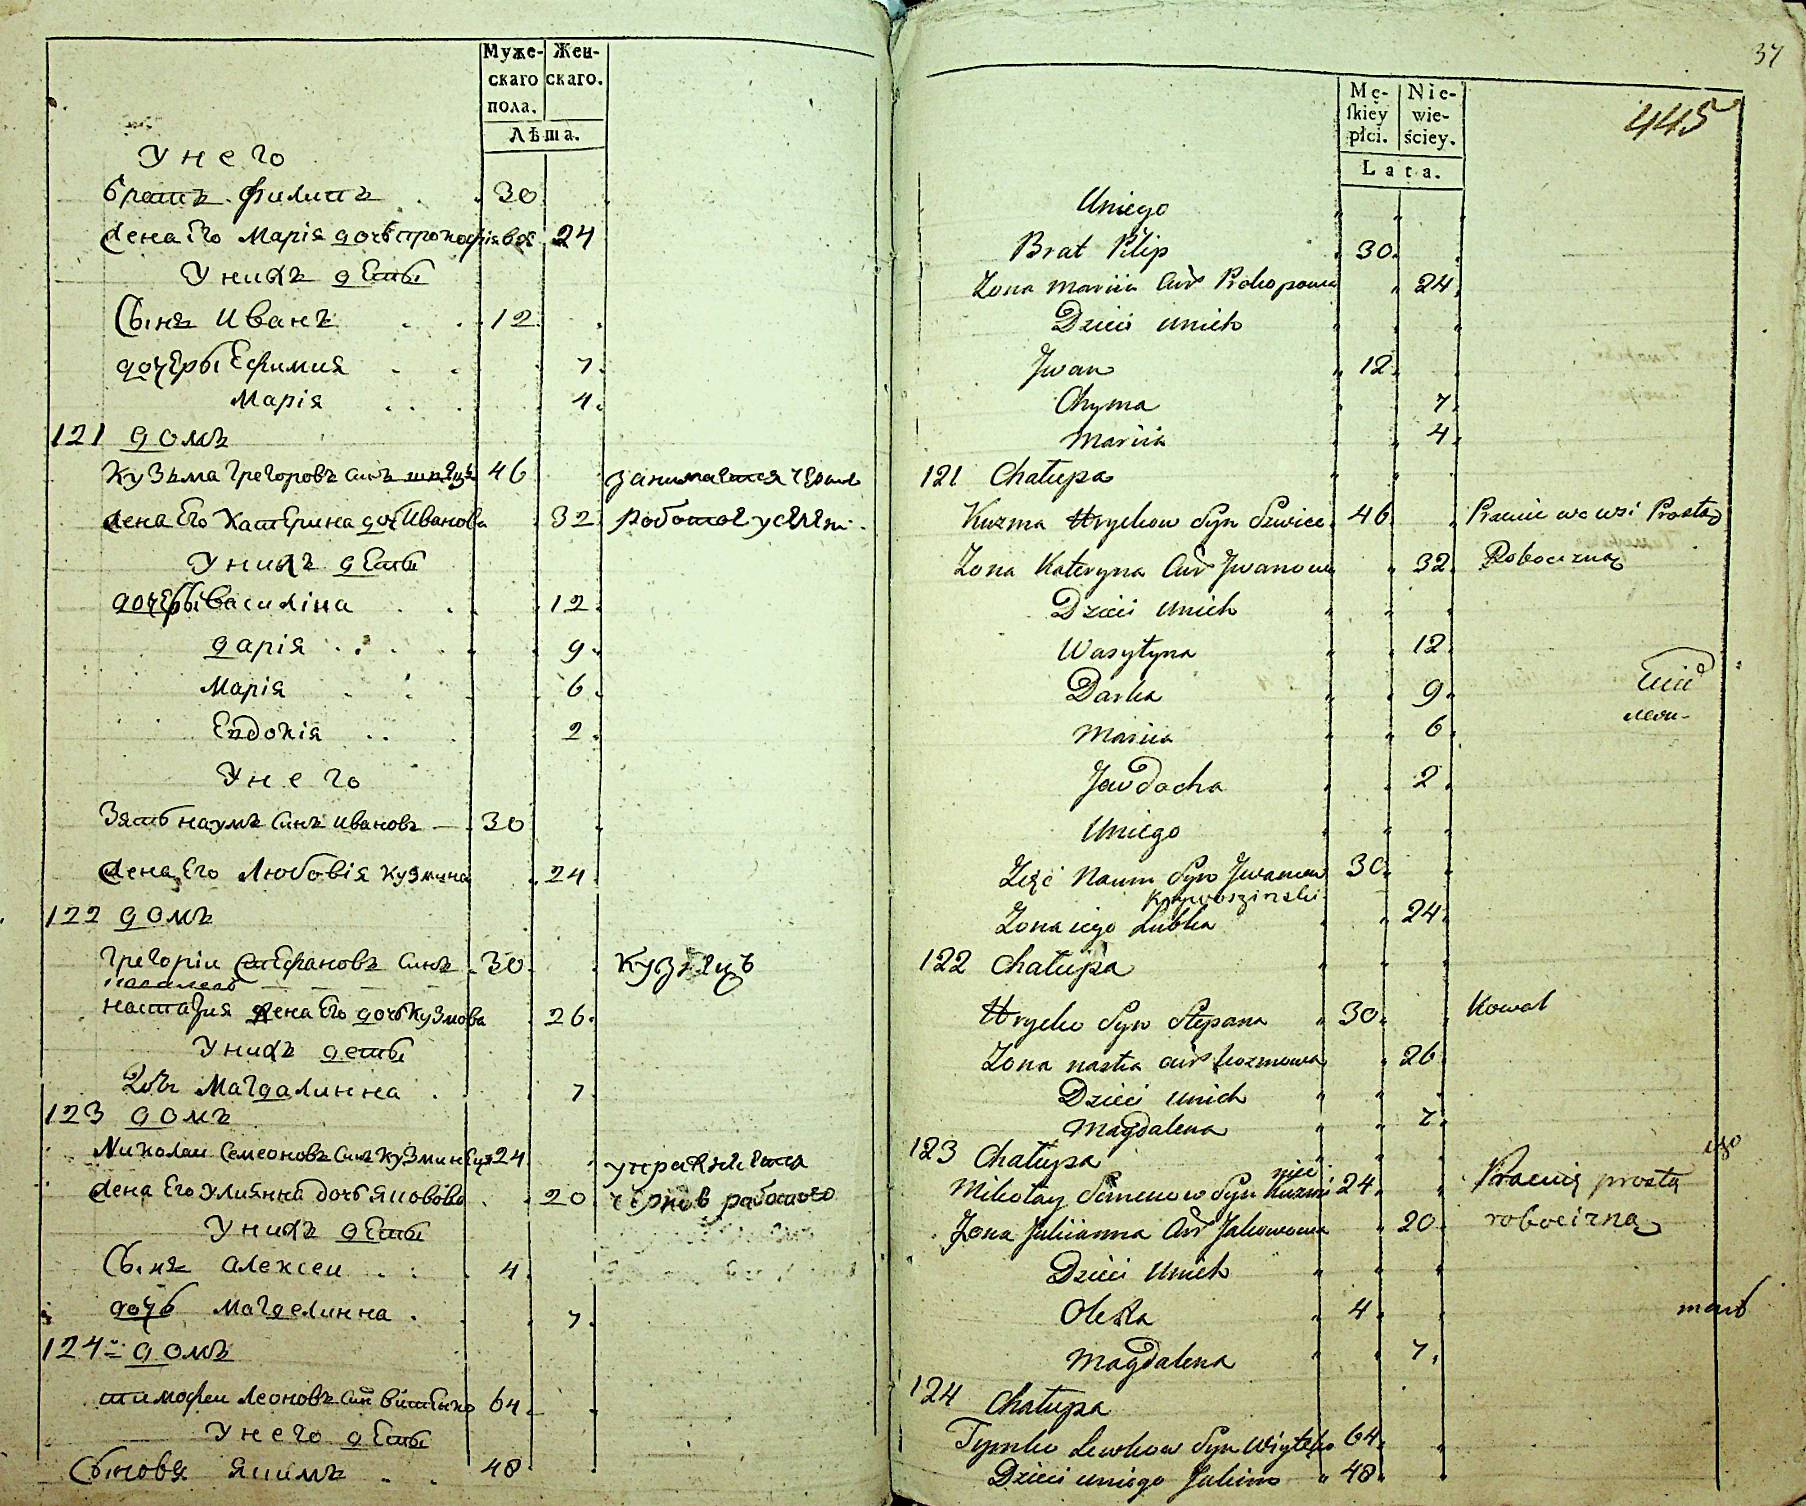 Муже-
скаго
пола.
Жен-
скаго.
Лѣта.
У него
братъ Филипъ 30
жена Его Марія дочь прокофіява 24
У нихъ дети
Сынъ Иванъ 12
дочеры Ефимия 7
Марія 4
121 домъ
Кузьма Григоровъ синъ швецъ 46 занимается черною
жена Его Катерина доч Иванова 32 работою
У нихъ дети
дочеры василіна 12
дарія 9
Марія 6
Евдокія 2
У него
Зять наумъ синъ ивановъ 30
жена Его Любовія кузмина 24
122 домъ
Григоріи Стефановъ синъ 30 кузнецъ
настазия жена Его дочь Кузмова 26
У нихъ дети
дочь Магдалинна 7
123 домъ
Николаи Семеоновъ синъ 24
жена Его Улиянна дочь яковова 20
У нихъ дети
Сынъ Алексеи 4
дочь Магделинна 7
124 домъ
тимофеи Леоновъ син 64
У него дети
Сыновя якимъ 48
37
445
Mę-
skiey
płci.
Nie-
wie-
ściey.
Lata.
Uniego
Brat Pilip 30
Zona mariia Cur Prokopowa 24
Dzieci unich
Jwan 12
Chyma 7
Mariia 4
121 Chałupa
Kuzma Hryckow Syn Szwiec 46 Pracuie we wsi Prostą
Zona Kateryna Cur Jwanowa 32 Robocizną
Dzieci unich
Wasyłyna 12
Darka 9
Mariia 6
Jewdocha 2
Uniego
Zięć Naum Syn Jwanow 30
Zona iego Lubka 24
122 Chałupa
Hrycko Syn Stepana 30 Kowal
Zona nastia cur kozmowa 26
Dzieci unich
Magdalena 7
123 Chałupa
Mikołay Semenow Syn 24 Pracuią prostą
Zona Juliianna Cur Jakowowa 20 robocizną
Dzieci unich
Olexa 4
Magdalena 7
124 Chałupa
Tymko Lewkow Syn 64
Dzieci uniego Jakim 48